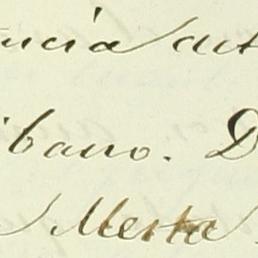 ncia det
ibano. D
Mesta